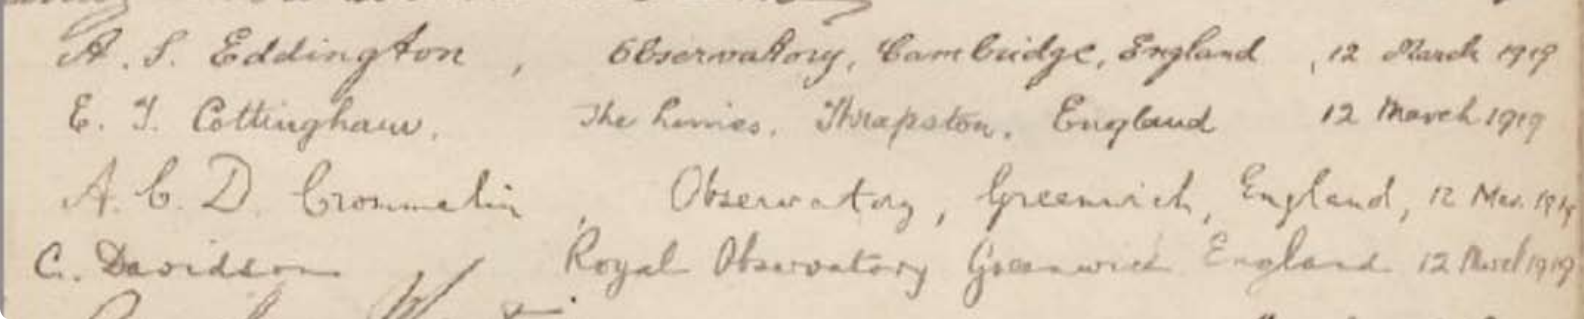 A. S. Eddington, Observatory, Cambridge, England, 12 March 1919
E. T. Cottingham. The Limes. Thrapston. England 12 March 1919
A. C. D. Crommelin, Observatory, Greenwich, England, 12 Mar. 1919
C. Davidson Royal Observatory Greenwich England 12 March 1919